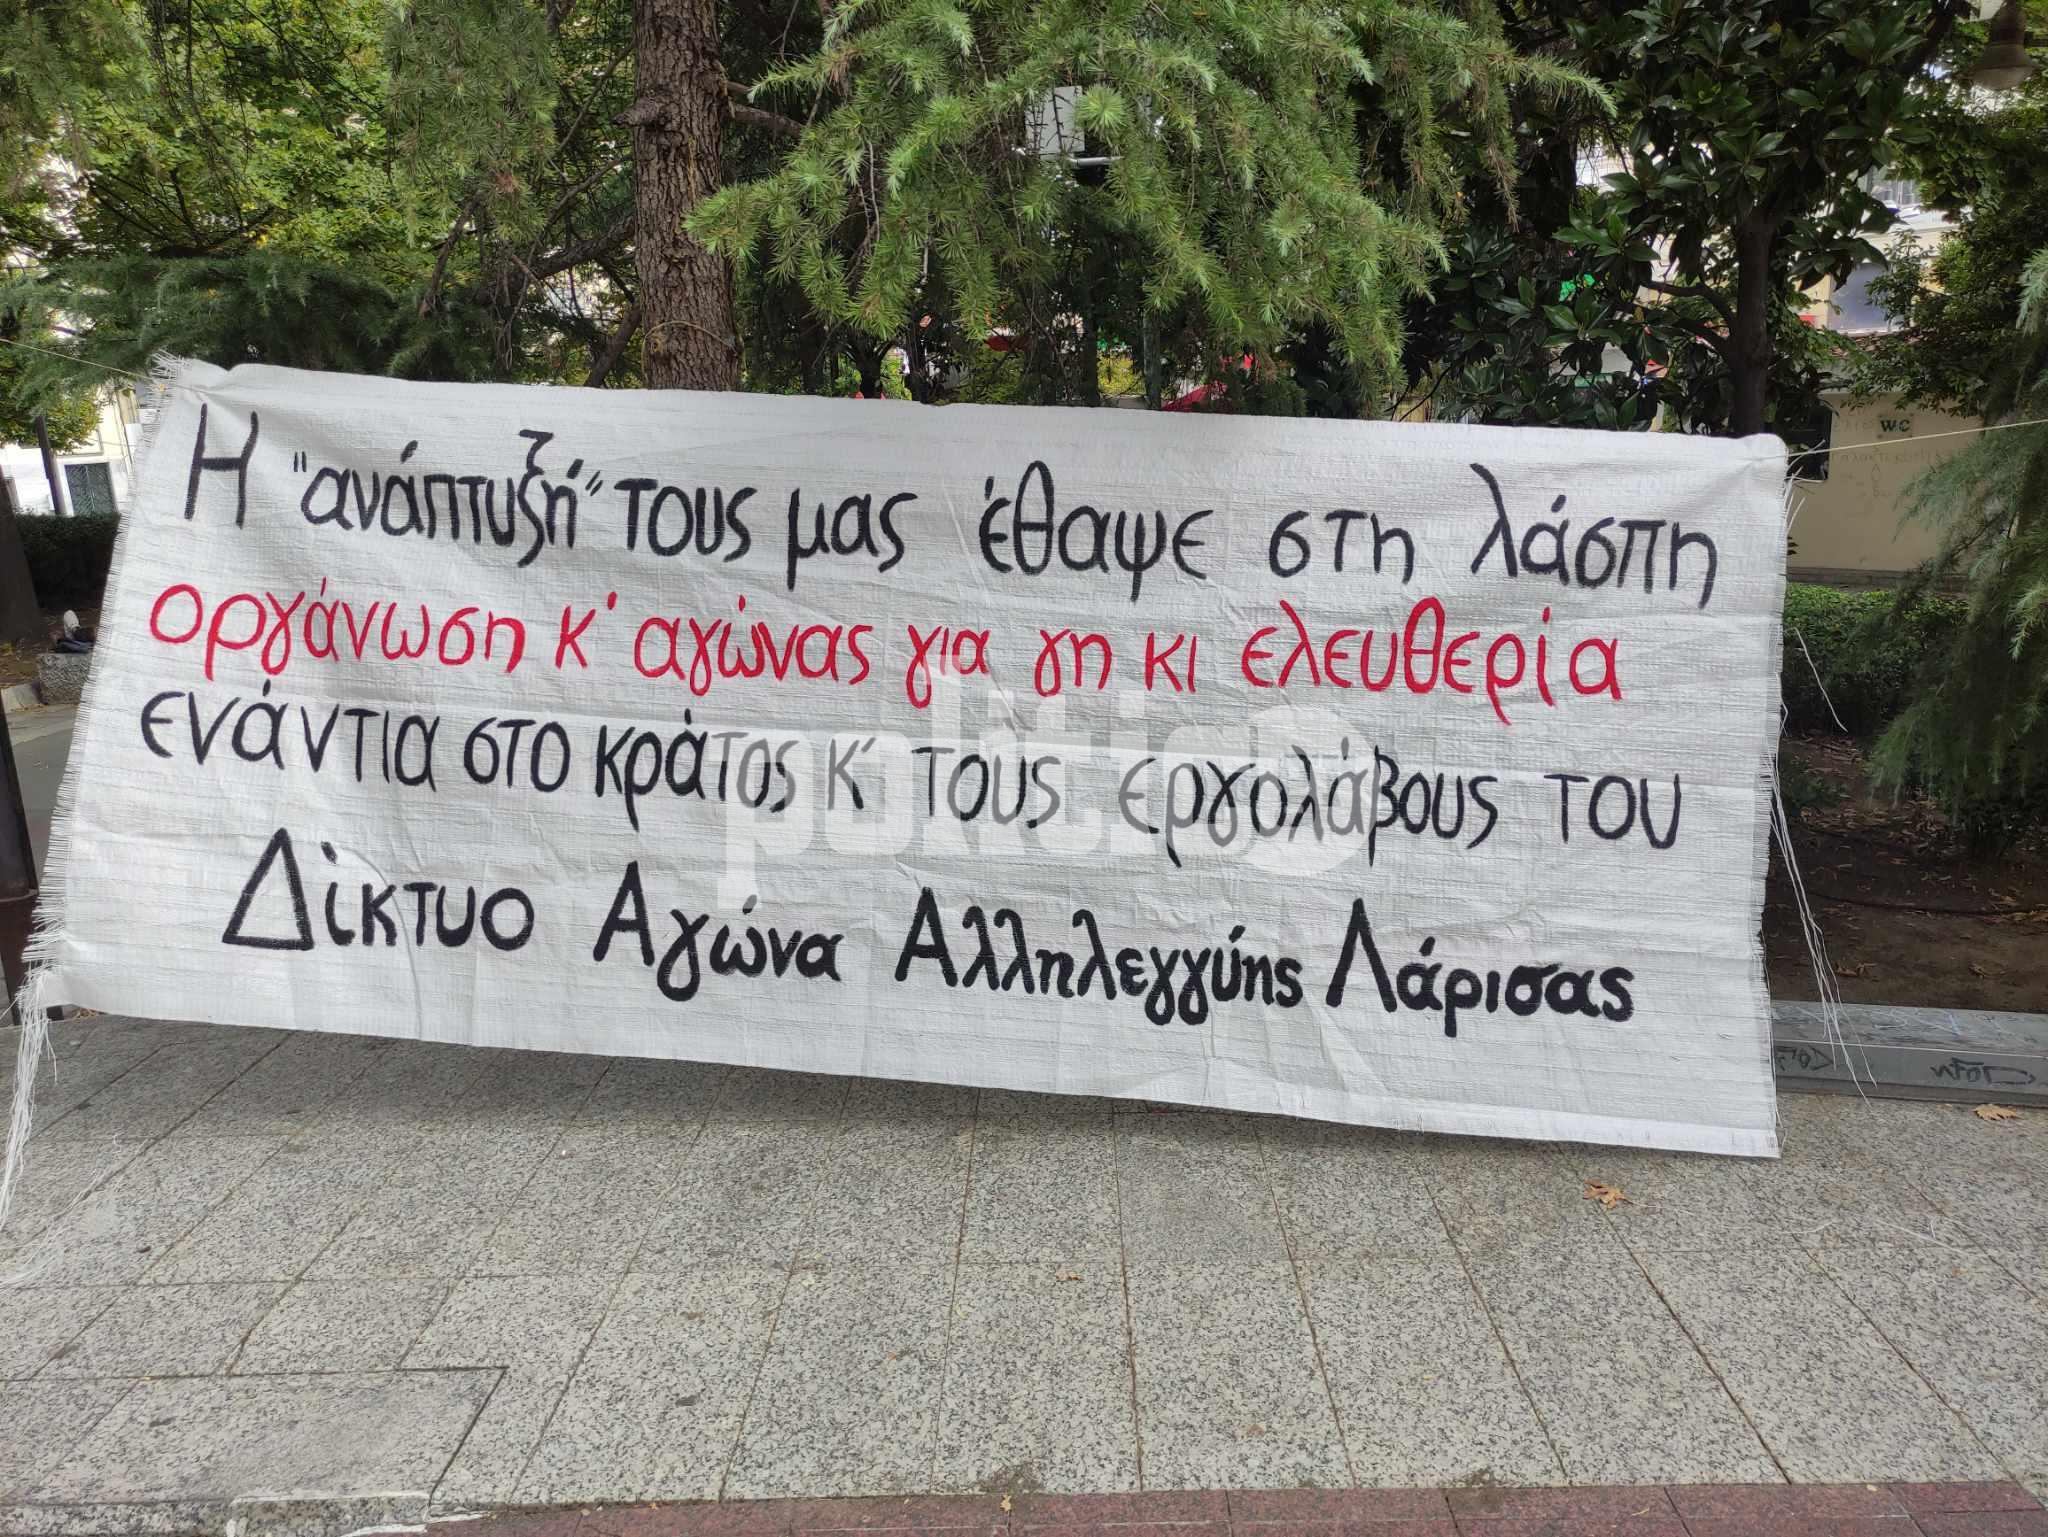 Η "ανάπτυξή" τους μας έθαψε στη λάσπη
οργάνωση κ' αγώνας για γη κι ελευθερία
ενάντια στο κράτος κ' τους εργολάβους του
Δίκτυο Αγώνα Αλληλεγγύης Λάρισας
politic
WC